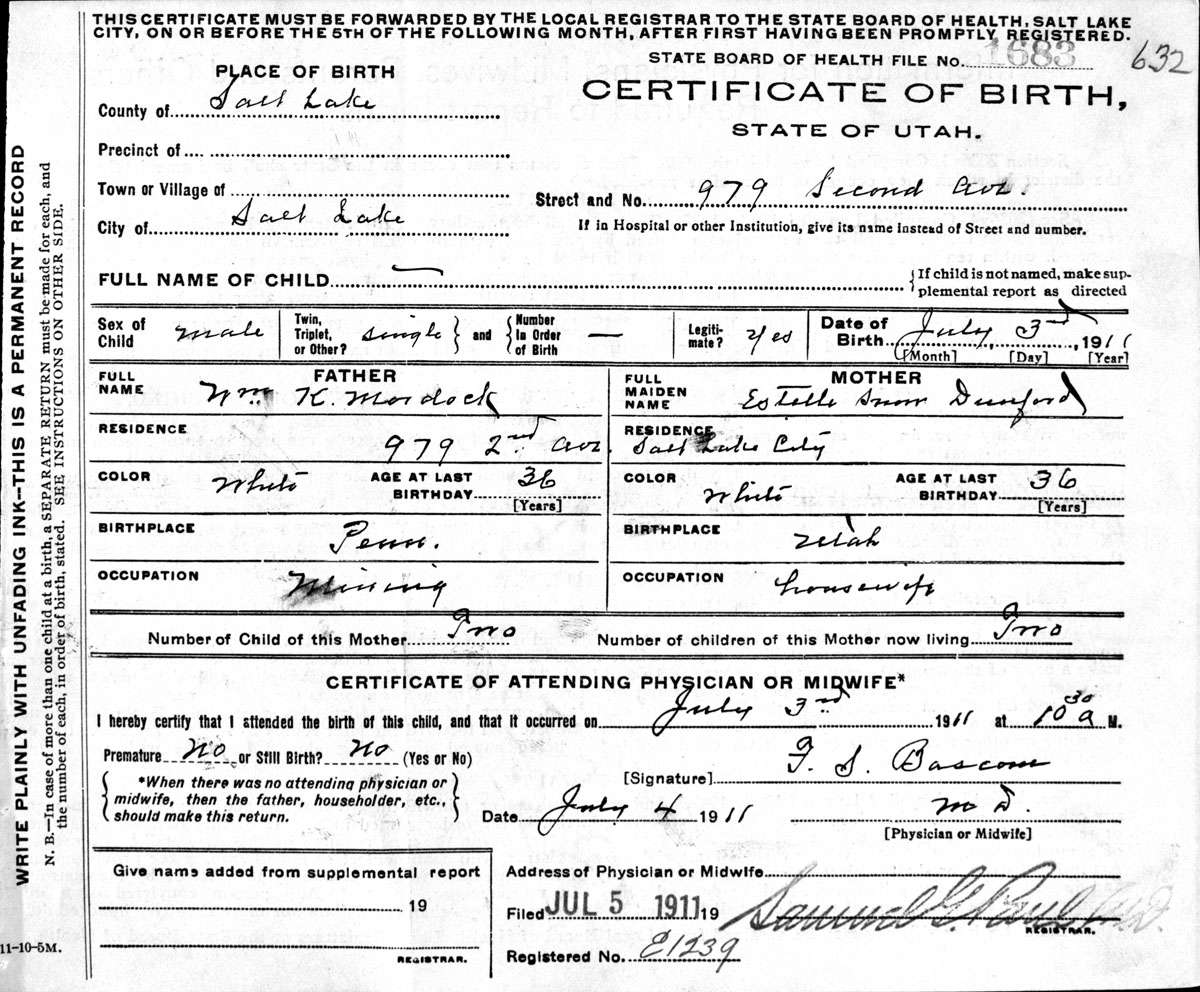 THIS CERTIFICATE MUST BE FORWARDED BY THE LOCAL REGISTRAR TO THE STATE BOARD OF HEALTH, SALT LAKE
CITY, ON OR BEFORE THE 5TH OF THE FOLLOWING MONTH, AFTER FIRST HAVING BEEN PROMPTLY REGISTERED.
STATE BOARD OF HEALTH FILE No. 1683 632
CERTIFICATE OF BIRTH,
STATE OF UTAH.
PLACE OF BIRTH
County of Salt Lake
Precinct of
Town or Village of
Street and No. 979 Second Ave.
City of Salt Lake
If in Hospital or other Institution, give its name instead of Street and number.
FULL NAME OF CHILD —
If child is not named, make sup-
plemental report as directed
Sex of Child male
Twin, Triplet, or Other? single and Number In Order of Birth —
Legiti- mate? Yes
Date of Birth July 3rd, 1911
[Month] [Day] [Year]
FATHER
FULL NAME Wm K. Mordock
RESIDENCE 979 2nd Ave.
COLOR White AGE AT LAST BIRTHDAY 36
[Years]
BIRTHPLACE Penn.
OCCUPATION Mining
MOTHER
FULL MAIDEN NAME Estelle Snow Dunford
RESIDENCE Salt Lake City
COLOR White AGE AT LAST BIRTHDAY 36
[Years]
BIRTHPLACE Utah
OCCUPATION housewife
Number of Child of this Mother Two Number of children of this Mother now living Two
CERTIFICATE OF ATTENDING PHYSICIAN OR MIDWIFE*
I hereby certify that I attended the birth of this child, and that it occurred on July 3rd 1911 at 10 30 a M.
Premature No or Still Birth? No (Yes or No)
*When there was no attending physician or
midwife, then the father, householder, etc.,
should make this return.
[Signature] F. S. Bascom
Date July 4 1911 M D.
[Physician or Midwife]
Give name added from supplemental report
19
REGISTRAR.
Address of Physician or Midwife
Filed JUL 5 1911 19 Samuel G. Paul M.D.
REGISTRAR.
Registered No. E1239
11-10-5M.
WRITE PLAINLY WITH UNFADING INK—THIS IS A PERMANENT RECORD
N. B.—In case of more than one child at a birth, a SEPARATE RETURN must be made for each, and
the number of each, in order of birth, stated. SEE INSTRUCTIONS ON OTHER SIDE.